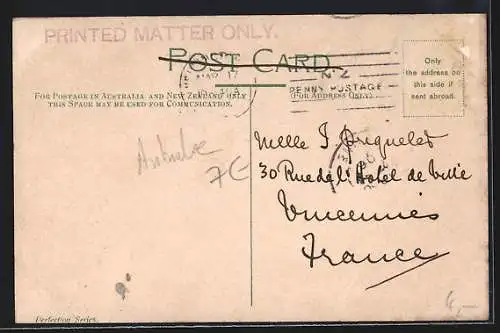 PRINTED MATTER ONLY.
POST CARD.
N Z
PENNY POSTAGE
FOR POSTAGE IN AUSTRALIA AND NEW ZEALAND ONLY
THIS SPACE MAY BE USED FOR COMMUNICATION.
(FOR ADDRESS ONLY)
Only
the address on
this side if
sent abroad.
Australie
7€
Melle J
30 Rue de l'Hotel de Ville
Vincennes
France
Perfection Series.